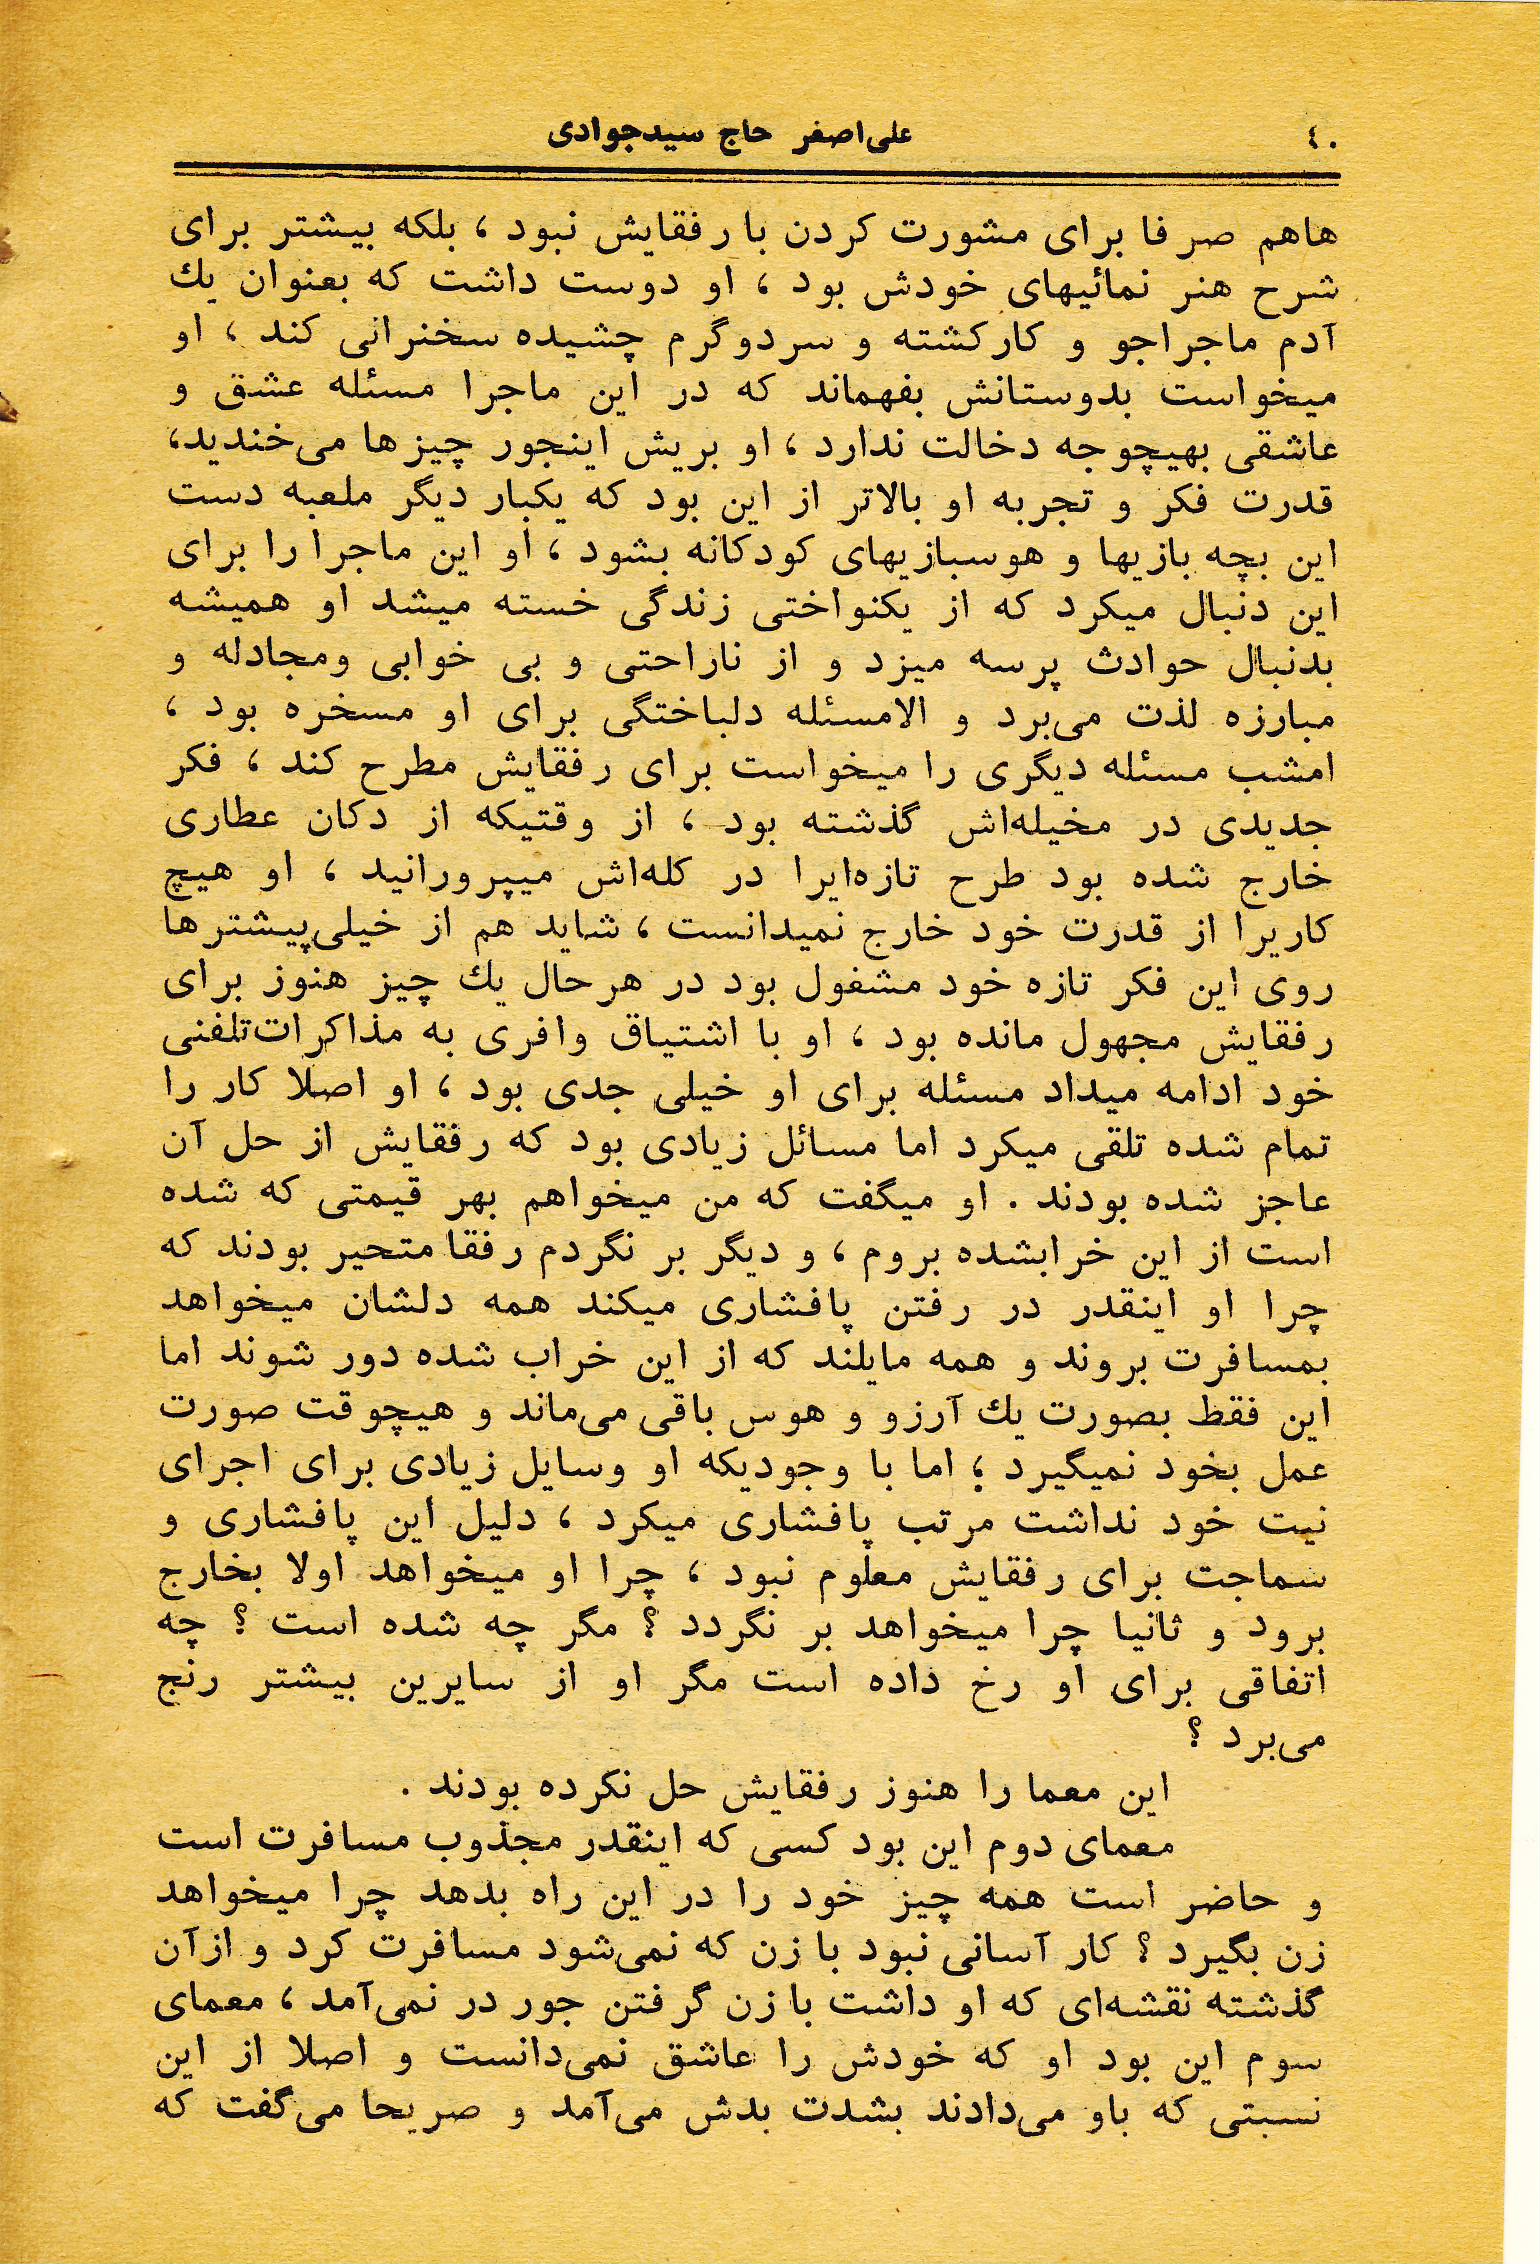 ٤٠
علی‌اصغر حاج سیدجوادی
هاهم صرفا برای مشورت کردن با رفقایش نبود ، بلکه بیشتر برای
شرح هنر نمائیهای خودش بود ، او دوست داشت که بعنوان یك
آدم ماجراجو و کارکشته و سردوگرم چشیده سخنرانی کند ، او
میخواست بدوستانش بفهماند که در این ماجرا مسئله عشق و
عاشقی بهیچوجه دخالت ندارد ، او بریش اینجور چیزها می‌خندید،
قدرت فکر و تجربه او بالاتر از این بود که یکبار دیگر ملعبه دست
این بچه بازیها و هوسبازیهای کودکانه بشود ، او این ماجرا را برای
این دنبال میکرد که از یکنواختی زندگی خسته میشد او همیشه
بدنبال حوادث پرسه میزد و از ناراحتی و بی خوابی ومجادله و
مبارزه لذت می‌برد و الامسئله دلباختگی برای او مسخره بود ،
امشب مسئله دیگری را میخواست برای رفقایش مطرح کند ، فکر
جدیدی در مخیله‌اش گذشته بود ، از وقتیکه از دکان عطاری
خارج شده بود طرح تازه‌ایرا در کله‌اش میپرورانید ، او هیچ
کاریرا از قدرت خود خارج نمیدانست ، شاید هم از خیلی‌پیشترها
روی این فکر تازه خود مشغول بود در هرحال یك چیز هنوز برای
رفقایش مجهول مانده بود ، او با اشتیاق وافری به مذاکرات‌تلفنی
خود ادامه میداد مسئله برای او خیلی جدی بود ، او اصلا کار را
تمام شده تلقی میکرد اما مسائل زیادی بود که رفقایش از حل آن
عاجز شده بودند . او میگفت که من میخواهم بهر قیمتی که شده
است از این خرابشده بروم ، و دیگر بر نگردم رفقا متحیر بودند که
چرا او اینقدر در رفتن پافشاری میکند همه دلشان میخواهد
بمسافرت بروند و همه مایلند که از این خراب شده دور شوند اما
این فقط بصورت یك آرزو و هوس باقی می‌ماند و هیچوقت صورت
عمل بخود نمیگیرد ؛ اما با وجودیکه او وسایل زیادی برای اجرای
نیت خود نداشت مرتب پافشاری میکرد ، دلیل این پافشاری و
سماجت برای رفقایش معلوم نبود ، چرا او میخواهد اولا بخارج
برود و ثانیا چرا میخواهد بر نگردد ؟ مگر چه شده است ؟ چه
اتفاقی برای او رخ داده است مگر او از سایرین بیشتر رنج
می‌برد ؟
این معما را هنوز رفقایش حل نکرده بودند .
معمای دوم این بود کسی که اینقدر مجذوب مسافرت است
و حاضر است همه چیز خود را در این راه بدهد چرا میخواهد
زن بگیرد ؟ کار آسانی نبود با زن که نمی‌شود مسافرت کرد و ازآن
گذشته نقشه‌ای که او داشت با زن گرفتن جور در نمی‌آمد ، معمای
سوم این بود او که خودش را عاشق نمی‌دانست و اصلا از این
نسبتی که باو می‌دادند بشدت بدش می‌آمد و صریحا می‌گفت که